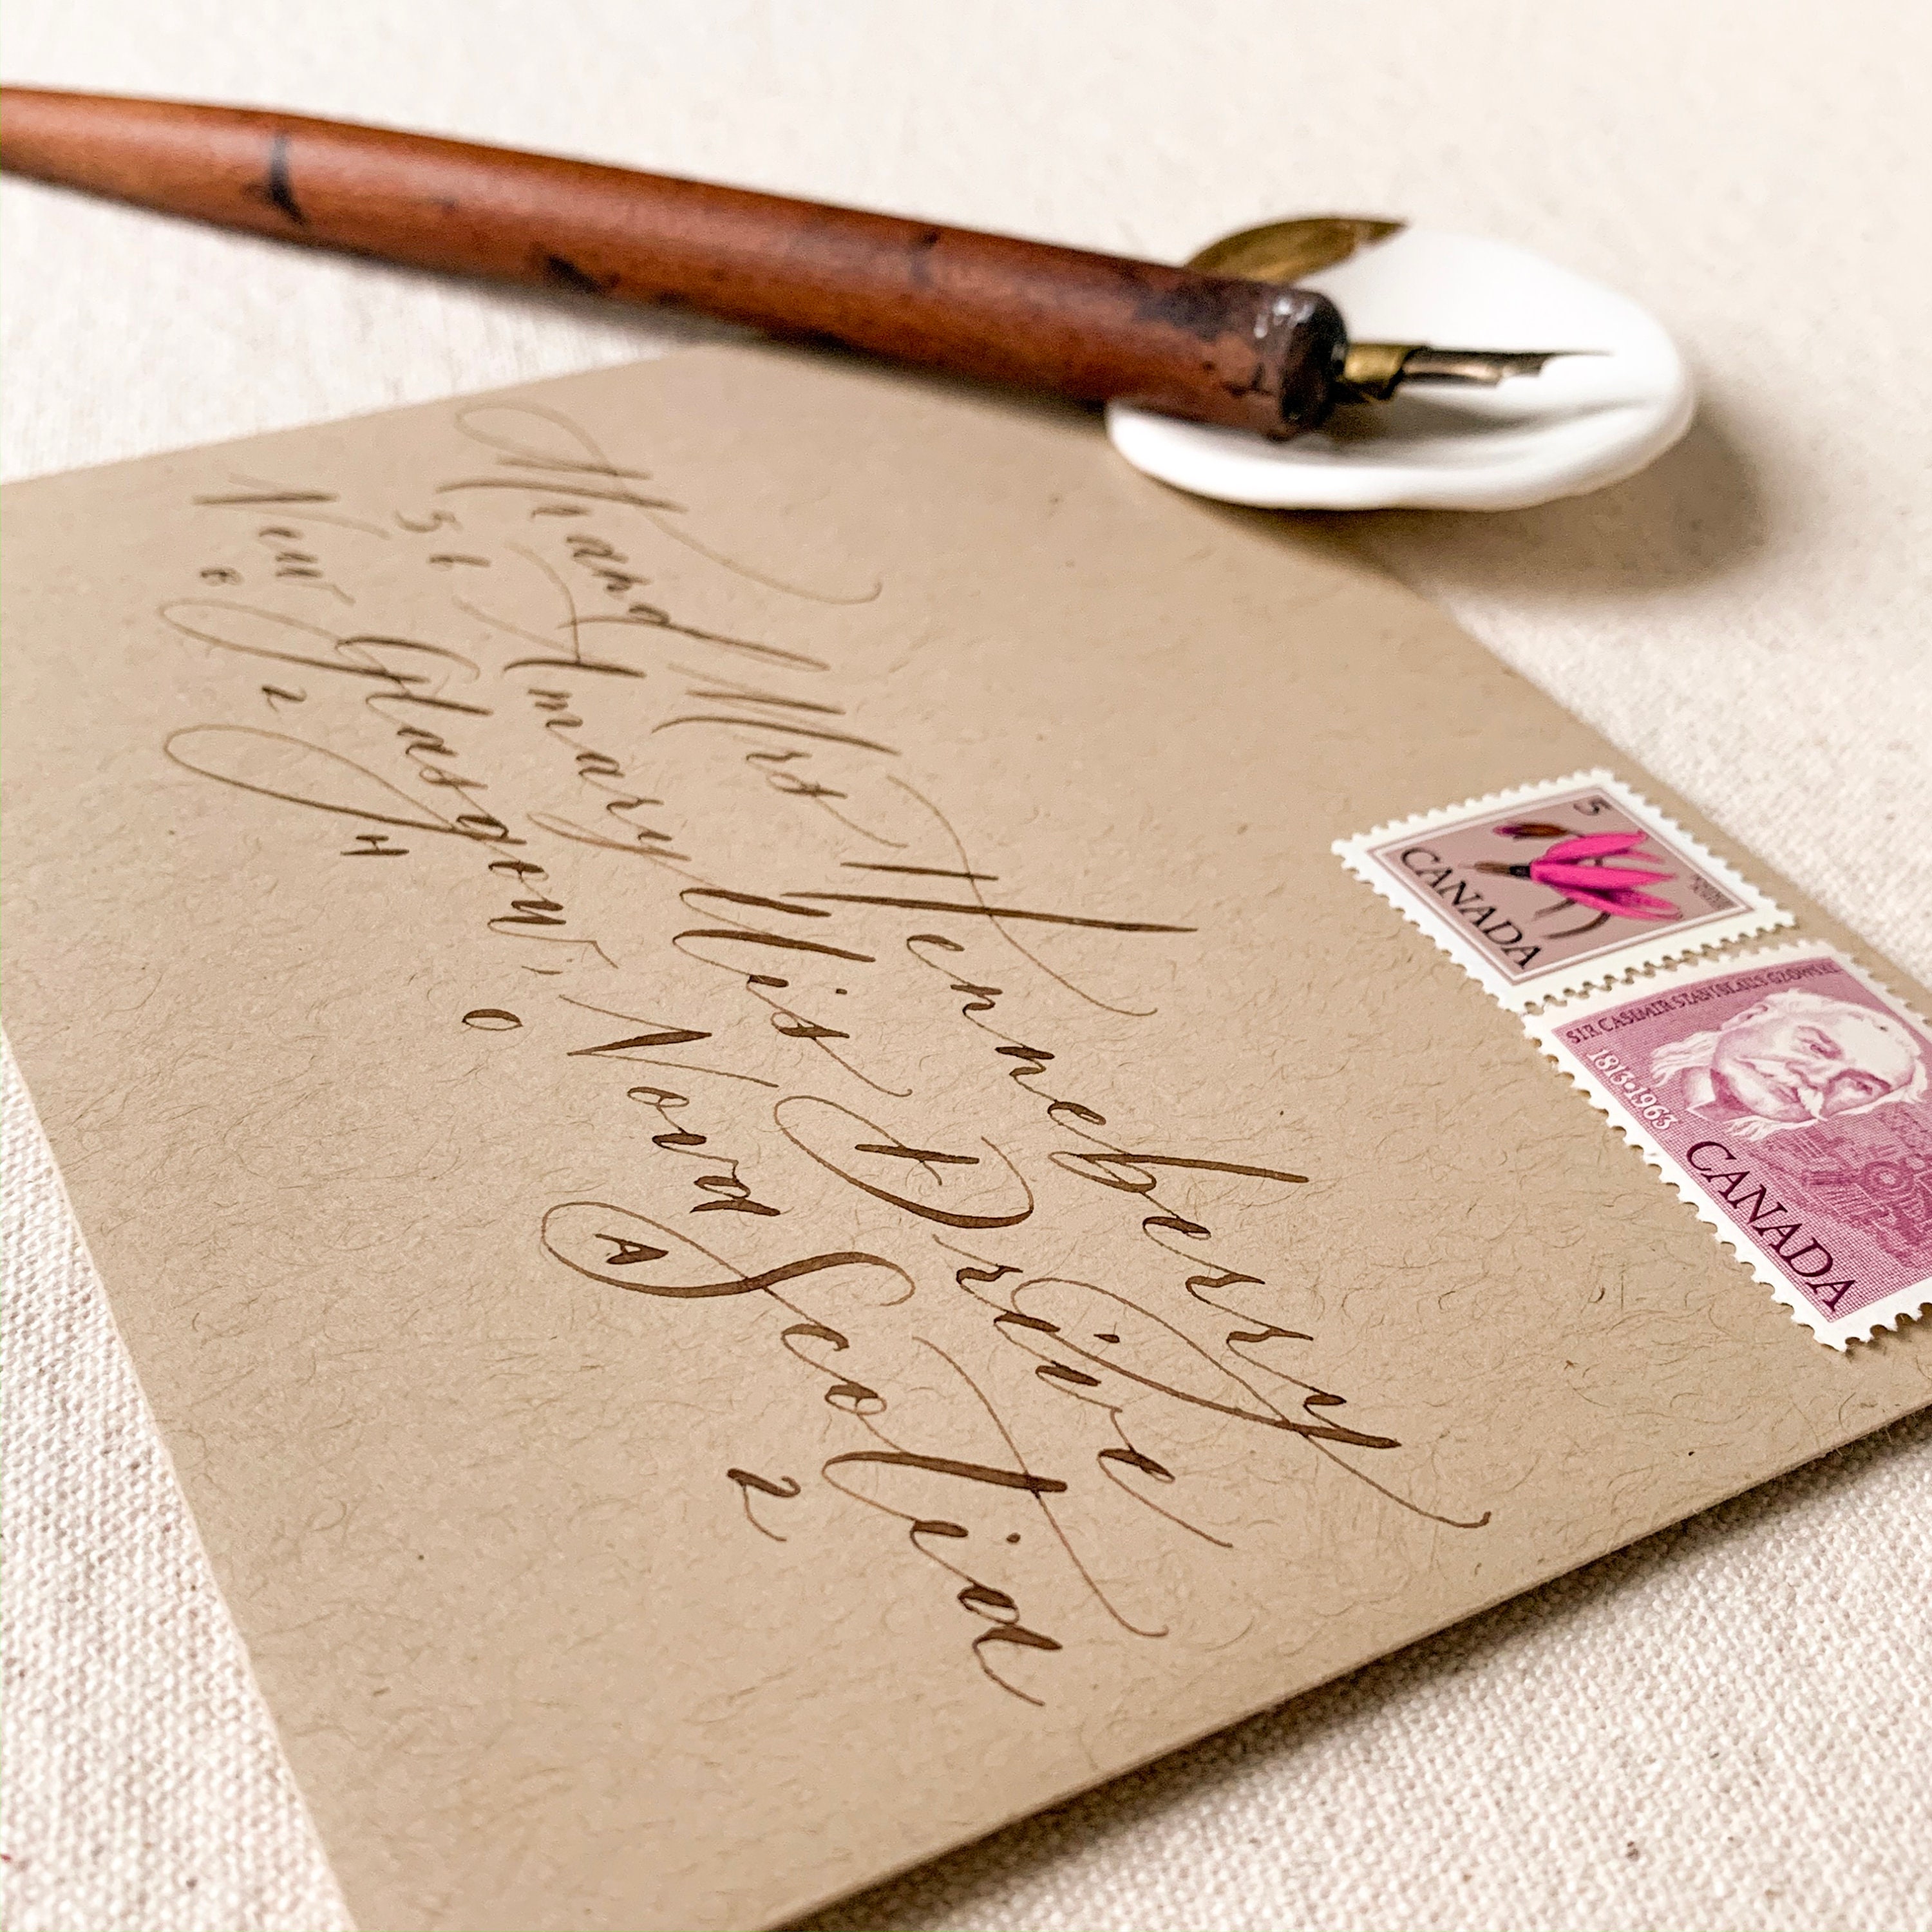 Mr and Mrs Henneberry
56 Amaryllis Drive
New Glasgow, Nova Scotia
B 2 H 0 A 2
5
CANADA
SIR CASIMIR STANISLAUS GZOWSKI
1813·1963
CANADA